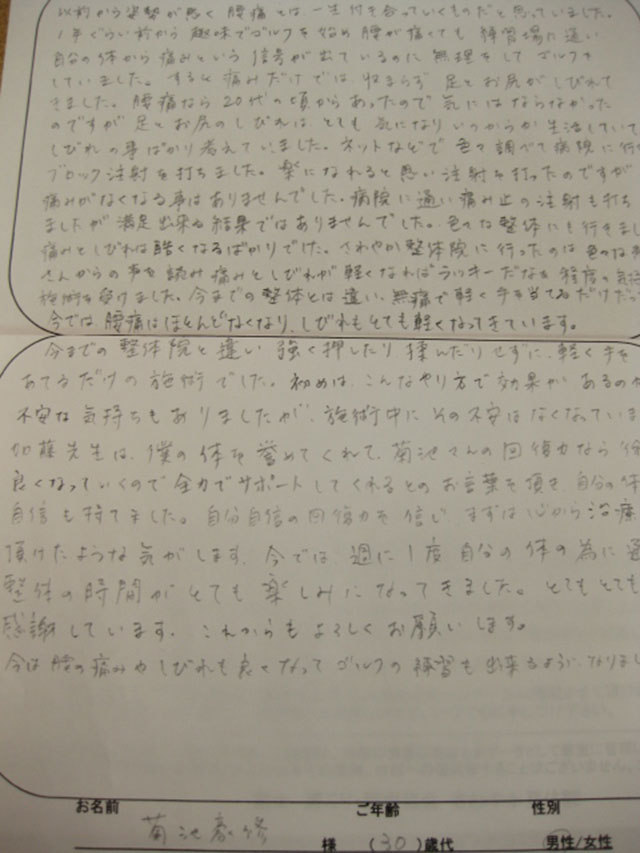 以前から姿勢が悪く腰痛とは、一生付き合っていくものだと思っていました。
1年ぐらい前から趣味でゴルフを始め腰が痛くても練習場に通い
自分の体から痛みという信号が出ているのに無理をしてゴルフを
していました。すると痛みだけでは収まらず足とお尻がしびれて
きました。腰痛なら20代の頃からあったので気にはならなかった
のですが足とお尻のしびれは、とても気になりいつからか生活していて
しびれの事ばかり考えていました。ネットなどで色々調べて病院に行き
ブロック注射を打ちました。楽になれると思い注射を打ったのですが
痛みがなくなる事はありませんでした。病院に通い痛み止の注射も打ち
ましたが満足出来る結果ではありませんでした。色々な整体にも行きまし
痛みとしびれは酷くなるばかりでした。さわやか整体院に行ったのは色々な
さんからの声を読み痛みとしびれが軽くなればラッキーだなぁ程度の気持
施術を受けました。今までの整体とは違い、無痛で軽く手を当てるだけだっ
今では腰痛はほとんどなくなり、しびれもとても軽くなってきています。
今までの整体院と違い強く押したり揉んだりせずに、軽く手を
あてるだけの施術でした。初めは、こんなやり方で効果があるのか
不安な気持ちもありましたが、施術中にその不安はなくなっていま
加藤先生は、僕の体を誉めてくれて、菊池さんの回復力なら徐
良くなっていくので全力でサポートしてくれるとのお言葉を頂き、自分の体
自信も持てました。自分自信の回復力を信じ、まずは心から治療
頂けたような気がします。今では、週に1度自分の体の為に通
整体の時間がとても楽しみになってきました。とてもとても
感謝しています。これからもよろしくお願いします。
今は腰の痛みやしびれも良くなってゴルフの練習も出来るようになりまし
お名前 ご年齢 性別
菊池 様 (30)歳代 男性/女性